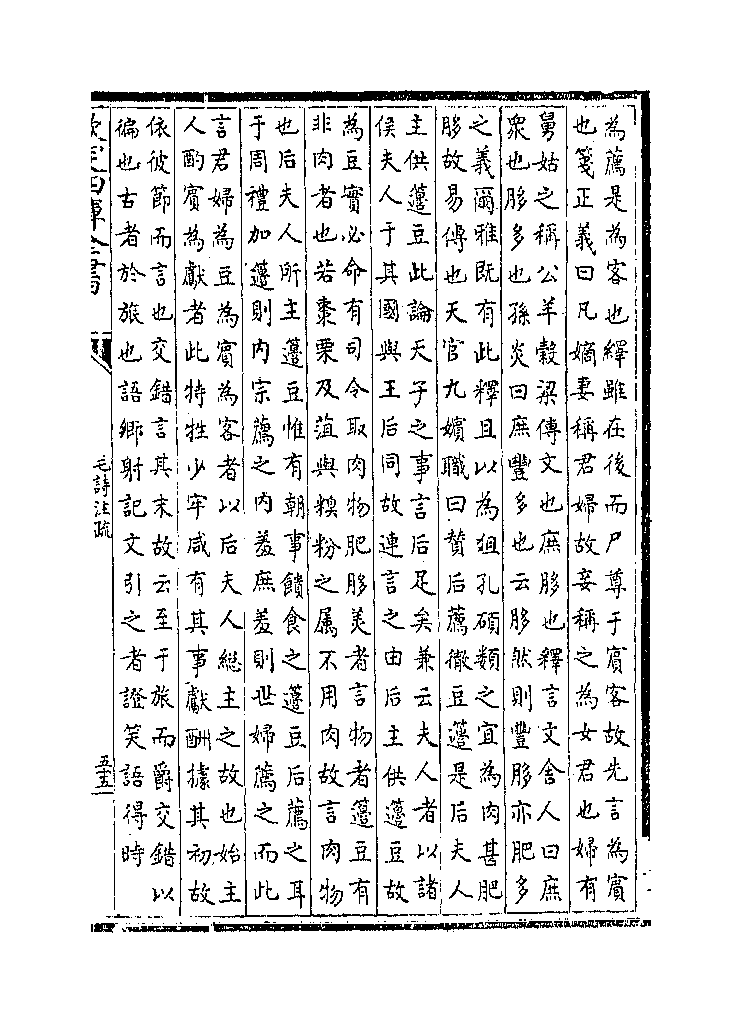 為薦是為客也繹雖在後而尸尊于賓客故先言為賓
也箋正義曰凡嫡妻稱君婦故妾稱之為女君也婦有
舅姑之稱公羊穀梁傳文也庶胗也釋言文舍人曰庶
衆也胗多也孫炎曰庶豐多也云胗然則豐胗亦肥多
之義爾雅既有此釋且以為俎孔碩類之宜為肉甚肥
胗故易傳也天官九嬪職曰贊后薦徹豆籩是后夫人
主供籩豆此論天子之事言后足矣兼云夫人者以諸
侯夫人于其國與王后同故連言之由后主供籩豆故
為豆實必命有司令取肉物肥胗美者言物者籩豆有
非肉者也若棗栗及菹與糗粉之属不用肉故言肉物
也后夫人所主籩豆惟有朝事饋食之籩豆后薦之耳
于周禮加籩則内宗薦之内羞庶羞則世婦薦之而此
言君婦為豆為賓為客者以后夫人緫主之故也始主
人酌賓為獻者此特牲少牢咸有其事獻酬據其初故
依彼節而言也交錯言其末故云至于旅而爵交錯以
徧也古者於旅也語鄉射記文引之者證笑語得時
欽定四庫全書
毛詩注疏
五十五